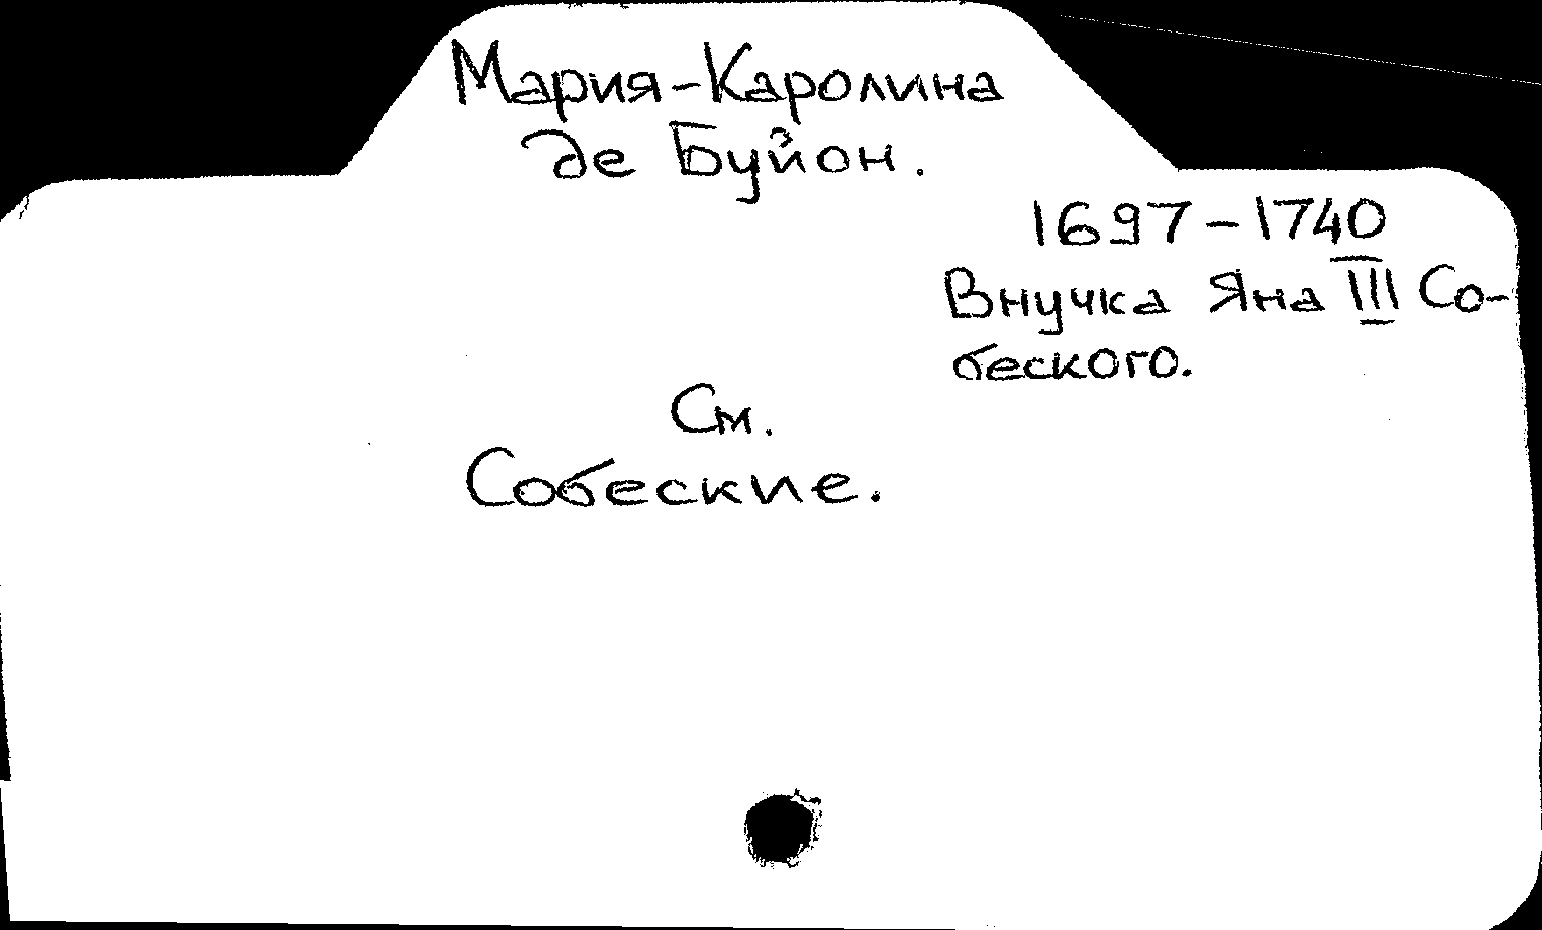 Мария-Каролина
де Буйон.
1697-1740
Внучка Яна III Со-
беского.
См.
Собеские.